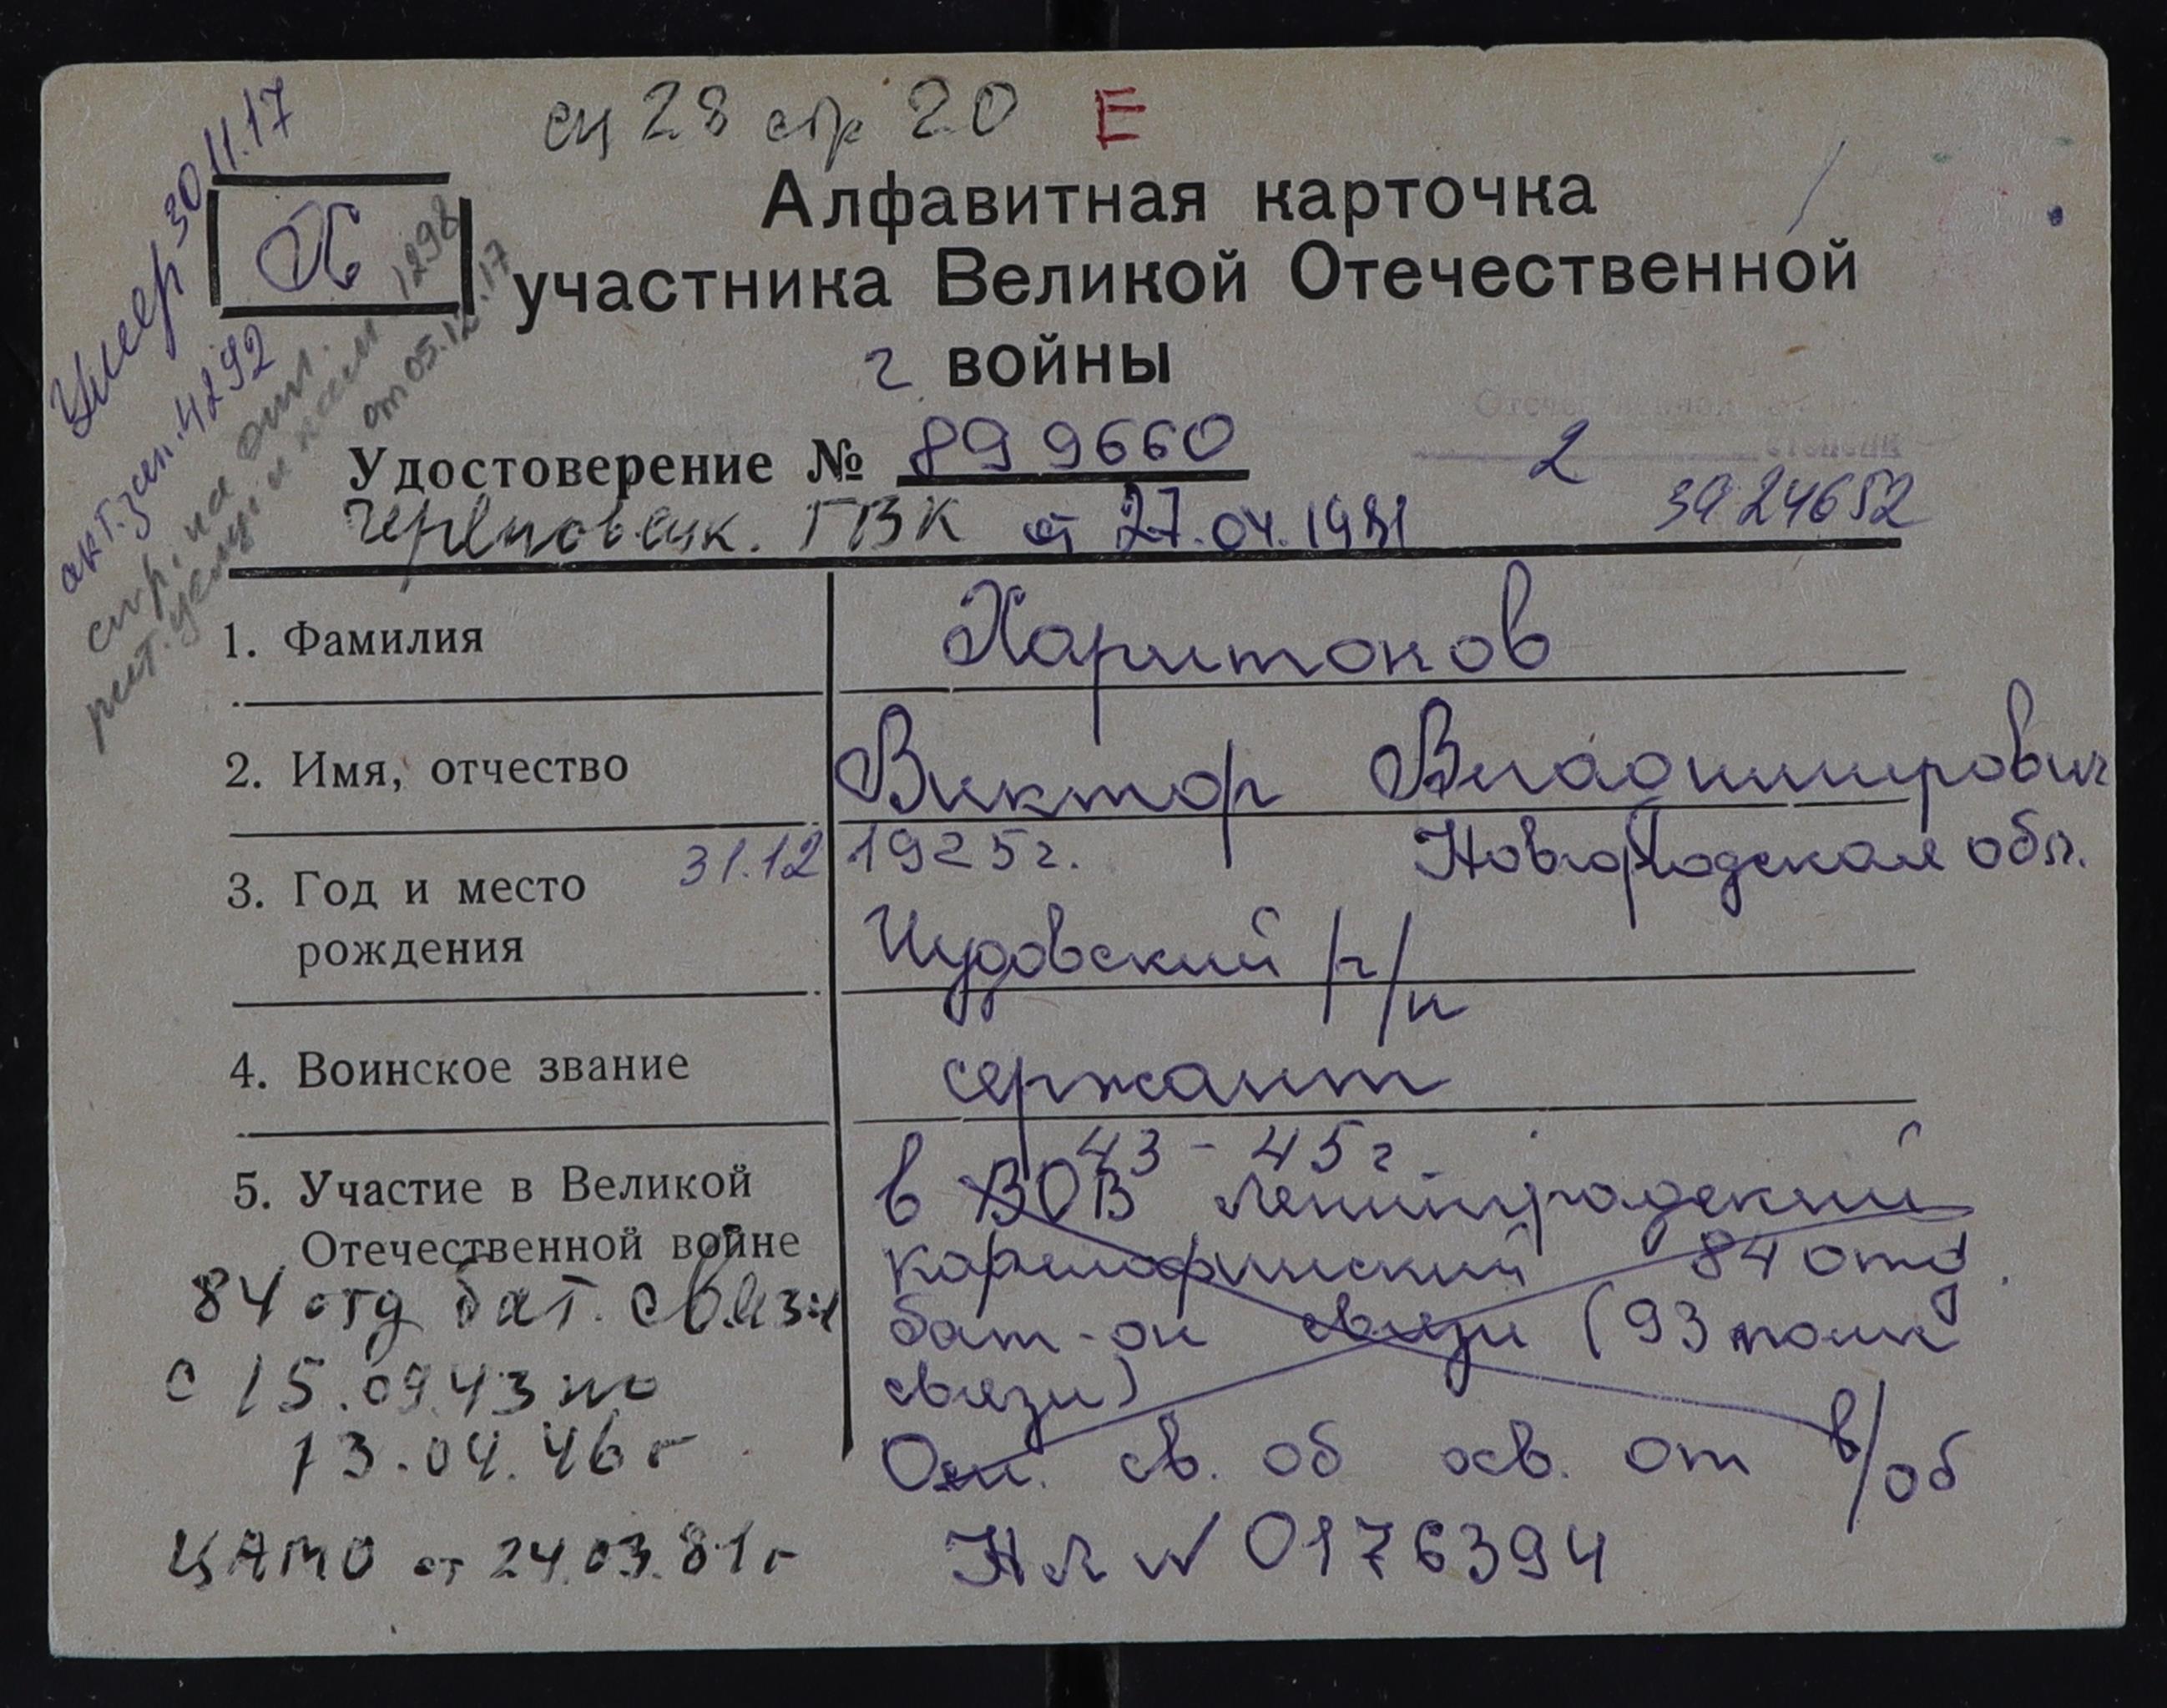 сц 28 стр 20 Е
Умер 30.11.17
акт. зап. 4292
1298
от 05.12.17
Х
Алфавитная карточка
участника Великой Отечественной
г войны
Удостоверение № 899660
2
Череповецк. ГВК от 27.04.1981
3924652
1. Фамилия Харитонов
2. Имя, отчество Виктор Владимирович
3. Год и место рождения 31.12 1925г. Новгородская обл.
Чудовский р/н
4. Воинское звание сержант
43-45г
5. Участие в Великой в ВОВ Ленинградский
Отечественной войне карелофинский 84 отд.
84 отд бат. связи бат-он связи (93 полк
с 15.09.43 по связи)
13.04.46г Осн. св. об осв. от в/об
ЦАМО от 24.03.81г НЛ № 0176394